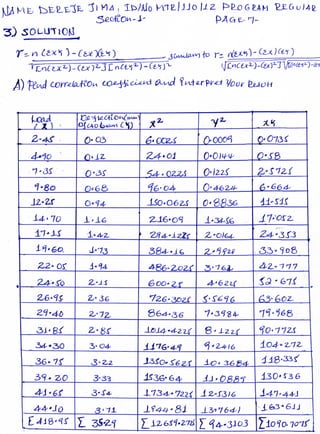 NAME DEREJE JIMA, ID/NO MTR/110/12 PROGRAM REGULAR
Section-1- PAGE-7-
3) SOLUTION
r = n(Σxy) - (Σx)(Σy) Similar to r = n(Σxy) - (Σx)(Σy)
√[n(Σx²)-(Σx)²][n(Σy²)-(Σy)²] √[n(Σx²)-(Σx)²]
A) Find correlation coefficient and interpret your result
Load (X) Deflection (Y) X² Y² XY
2.45 0.03 6.0025 0.0009 0.0735
4.90 0.12 24.01 0.0144 0.58
7.35 0.35 54.0225 0.1225 2.5725
9.80 0.68 96.04 0.4624 6.664
12.25 0.94 150.0625 0.8836 11.515
14.70 1.16 216.09 1.3456 17.052
17.15 1.42 294.1225 2.0164 24.353
19.60 1.73 384.16 2.9929 33.908
22.05 1.94 486.2025 3.764 42.777
24.50 2.15 600.25 4.6225 52.675
26.95 2.36 726.3025 5.5696 63.602
29.40 2.72 864.36 7.3984 79.968
31.85 2.85 1014.4225 8.1225 90.7725
34.30 3.04 1176.49 9.2416 104.272
36.75 3.22 1350.5625 10.3684 118.335
39.20 3.33 1536.64 11.0889 130.536
41.65 3.54 1734.7225 12.5316 147.441
44.10 3.71 1944.81 13.7641 163.611
Σ418.95 Σ 35.29 Σ12659.278 Σ94.3103 Σ1090.7075